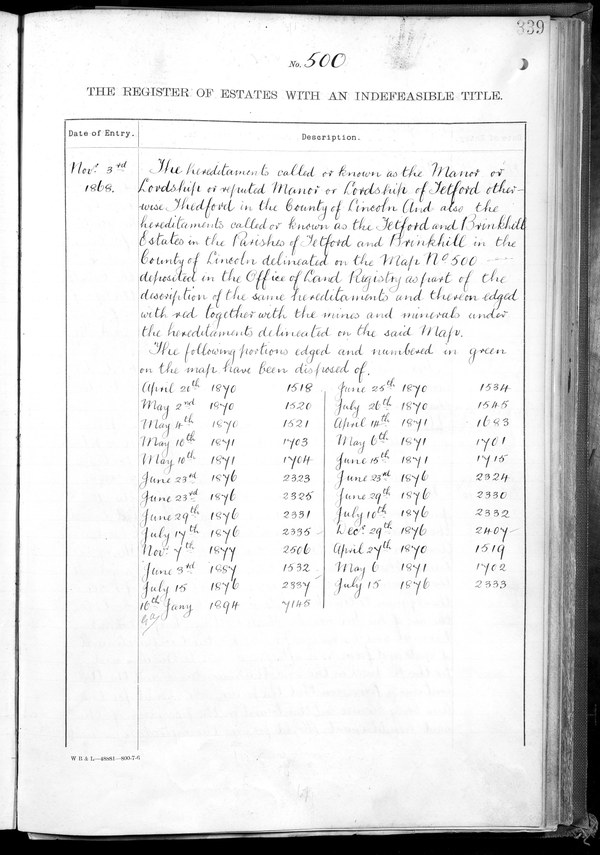 339
No. 500
THE REGISTER OF ESTATES WITH AN INDEFEASIBLE TITLE.
Date of Entry.
Description.
Novr. 3rd
1868.
The hereditaments called or known as the Manor or
Lordship or reputed Manor or Lordship of Tetford other-
wise Thedford in the County of Lincoln And also the
hereditaments called or known as the Tetford and Brinkhill
Estates in the Parishes of Tetford and Brinkhill in the
County of Lincoln delineated on the Map No 500
deposited in the Office of Land Registry as part of the
description of the same hereditaments and thereon edged
with red together with the mines and minerals under
the hereditaments delineated on the said Map.
The following portions edged and numbered in green
on the map have been disposed of.
April 20th 1870 1518 June 25th 1870 1534
May 2nd 1870 1520 July 26th 1870 1545
May 4th 1870 1521 April 14th 1871 1683
May 10th 1871 1703 May 6th 1871 1701
May 10th 1871 1704 June 15th 1871 1715
June 23rd 1876 2323 June 23rd 1876 2324
June 23rd 1876 2325 June 29th 1876 2330
June 29th 1876 2331 July 10th 1876 2332
July 17th 1876 2335 Decr. 29th 1876 2407
Novr. 7th 1877 2506 April 27th 1870 1519
June 3rd 1887 1532 May 6 1871 1702
July 15 1876 2337 July 15 1876 2333
10th Jany 1894 7145
W B & L—48881—800-7-6